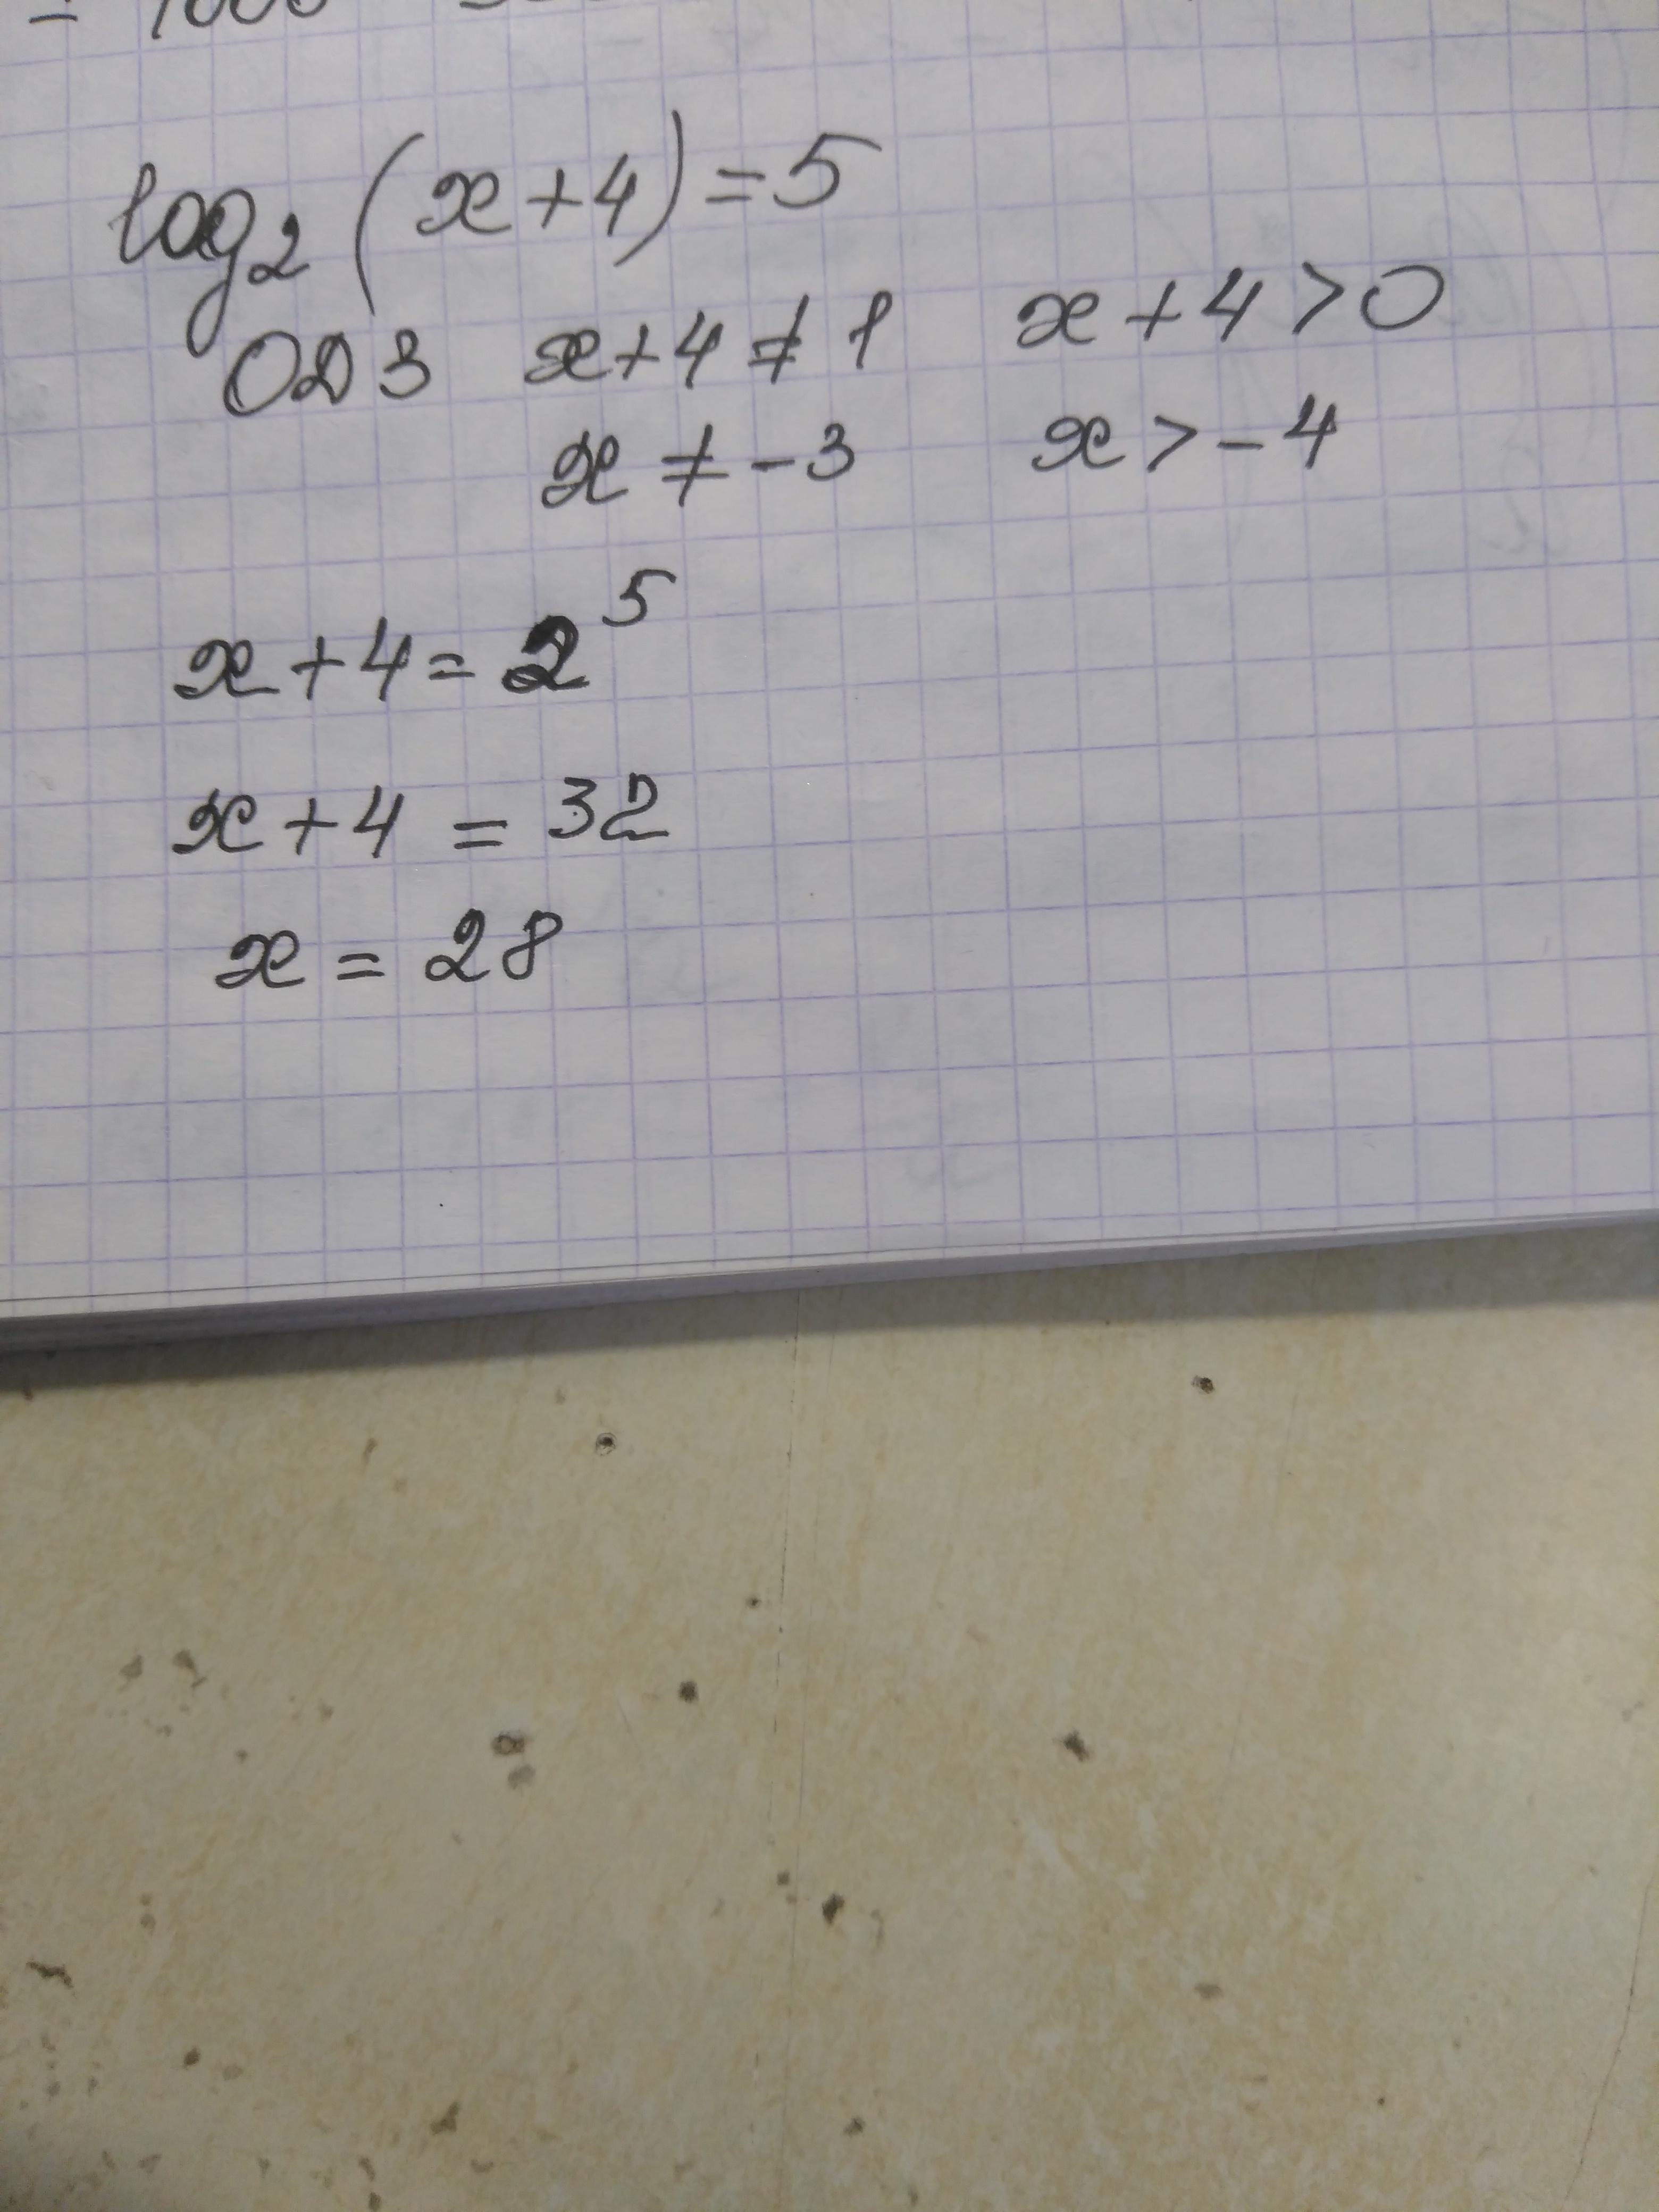 log₂(x+4)=5
ОДЗ x+4≠1 x+4>0
x≠-3 x>-4
x+4=2⁵
x+4=32
x=28